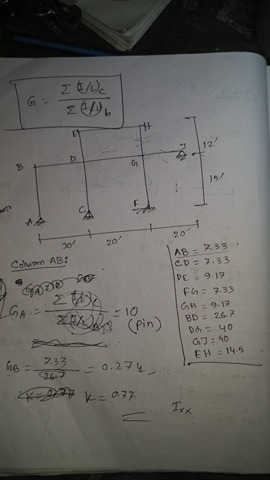 G = Σ(I/L)c / Σ(I/L)b
E H
B D G J
12'
15'
A C F
30' 20' 20'
Column AB:
GA = Σ(I/L)c / Σ(I/L)b = 10 (pin)
GB = 7.33 / 26.7 = 0.274
K = 0.77
Ixx
AB = 7.33
CD = 7.33
DE = 9.17
FG = 7.33
GH = 9.17
BD = 26.7
DG = 40
GJ = 40
EH = 14.5